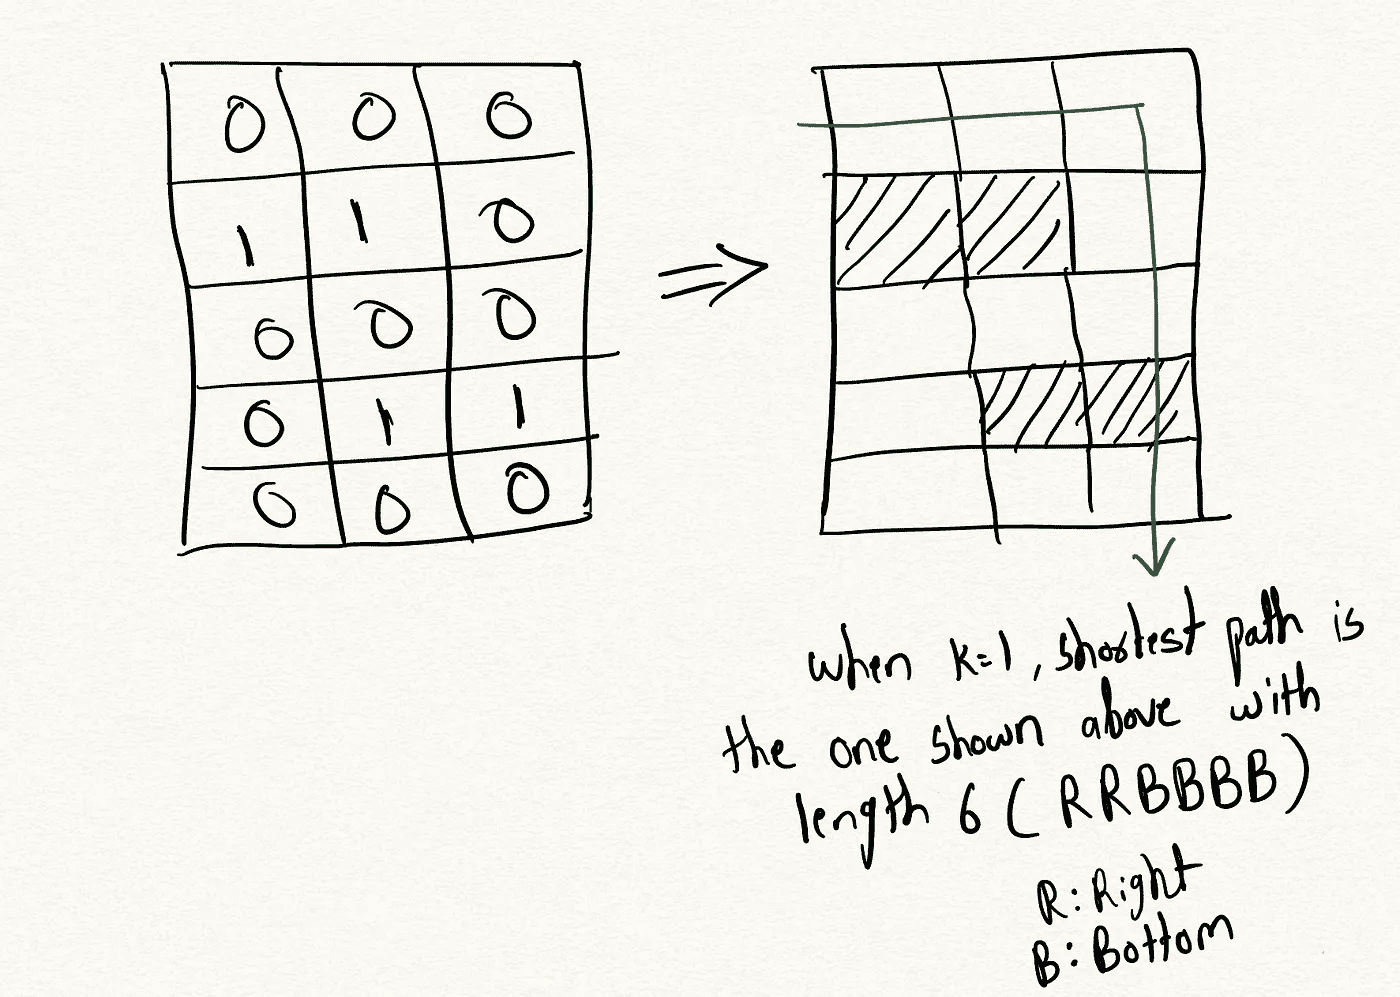 0 0 0
1 1 0
0 0 0
0 1 1
0 0 0
when k=1, shortest path is
the one shown above with
length 6 (RRBBBB)
R: Right
B: Bottom